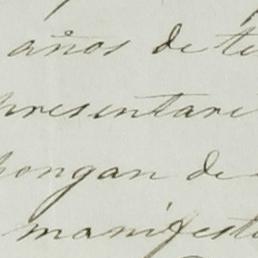 años de te
presentare
pongan de
manifest